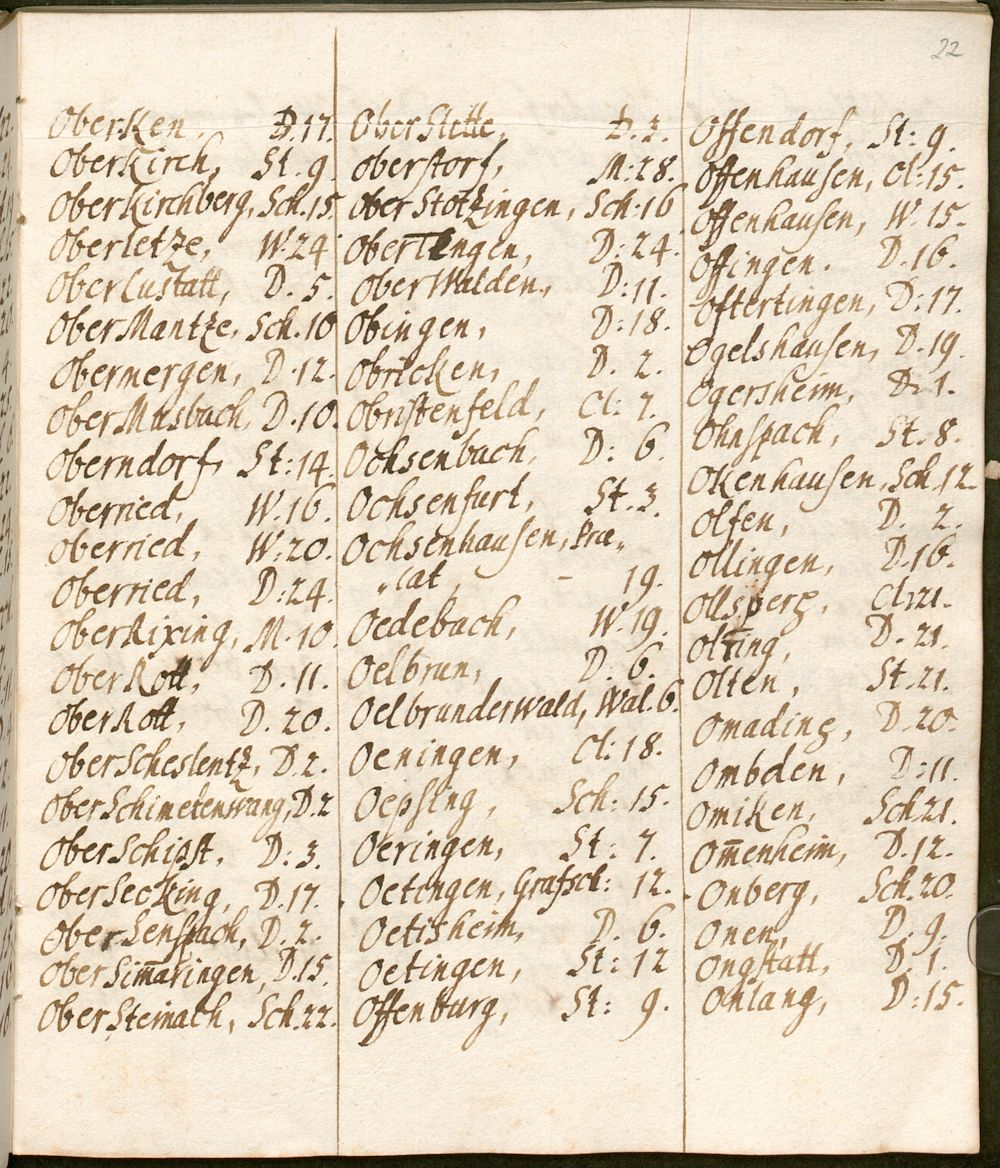 22
OberKen, D.17.
OberKirch, St. 9.
OberKirchberg, Sch.15.
Oberletze, W.24
OberLustatt, D. 5.
OberMantze, Sch.10
Obermergen, D.12.
OberMusbach, D.10.
Oberndorf, St:14.
Oberried, W.16.
Oberried, W:20.
Oberried, D:24.
OberRixing, M.10.
OberRott, D.11.
OberRott, D.20.
OberScheslentz, D.2.
OberSchimetenwang, D.2
OberSchipst, D:3.
OberSecking, D.17.
OberSenspach, D.2.
OberSim̄aringen, D.15.
OberSteinach, Sch.22.
OberStette, D.3.
Oberstorf, M:28.
OberStotzingen, Sch:16
D:24.
OberWalden, D:11.
Obingen, D:18.
Obricken, D. 2.
Obristenfeld, Cl: 7.
Ochsenbach, D: 6.
Ochsenfurt, St.3.
Ochsenhausen, Præ„
„lat, – 19.
Oedebach, W.19.
Oelbrun, D. 6.
Oelbrunderwald, Wal.6.
Oeningen, Cl:18.
Oepsing, Sch: 15.
Oeringen, St: 7.
Oetingen, Grafsch: 12.
Oetisheim, D. 6.
Oetingen, St: 12
Offenburg, St: 9.
Offendorf, St: 9.
Offenhausen, Cl:15.
Offenhausen, W.15.
Offingen. D.16.
Oftertingen, D:17.
Ogelshausen, D.19.
Ogersheim, D.1.
Ohnspach, St.8.
Okenhausen, Sch.12.
Olfen, D. 2.
Ollingen, D.16.
Ollsperg, Cl:21.
Olting, D.21.
Olten, St.21.
Omading, D.20.
Ombden, D:11.
Omiken, Sch.21.
Om̄enheim, D.12.
Onberg, Sch.20.
Onen, D.9.
Ongstatt, D.1.
Onlang, D:15.